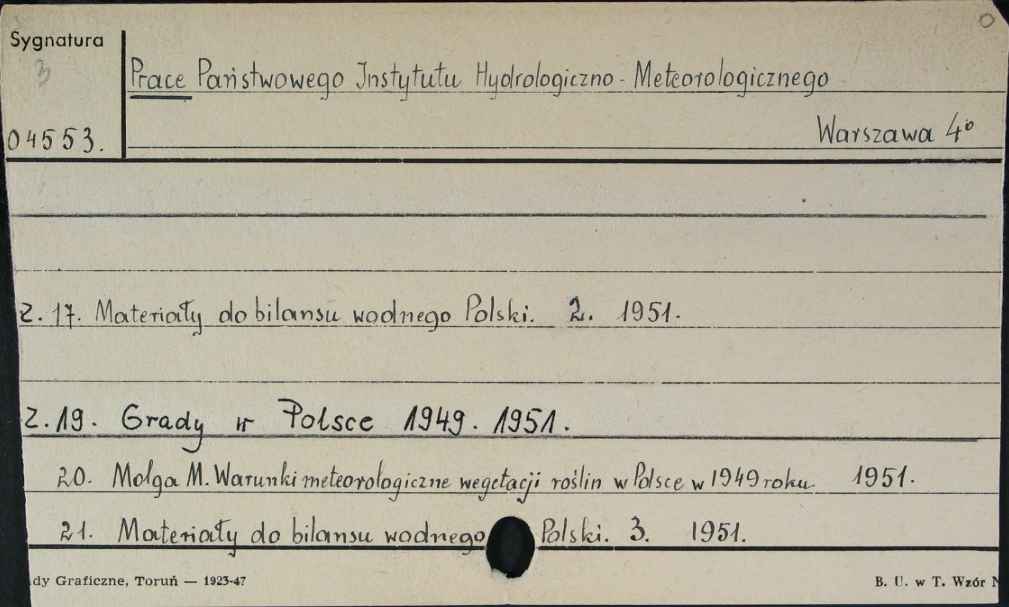 Sygnatura
3
Prace Państwowego Instytutu Hydrologiczno-Meteorologicznego
04553.
Warszawa 4°
Z. 17. Materiały do bilansu wodnego Polski. 2. 1951.
Z. 19. Grady w Polsce 1949. 1951.
20. Molga M. Warunki meteorologiczne wegetacji roślin w Polsce w 1949 roku. 1951.
21. Materiały do bilansu wodnego Polski. 3. 1951.
dy Graficzne, Toruń — 1923-47
B. U. w T. Wzór